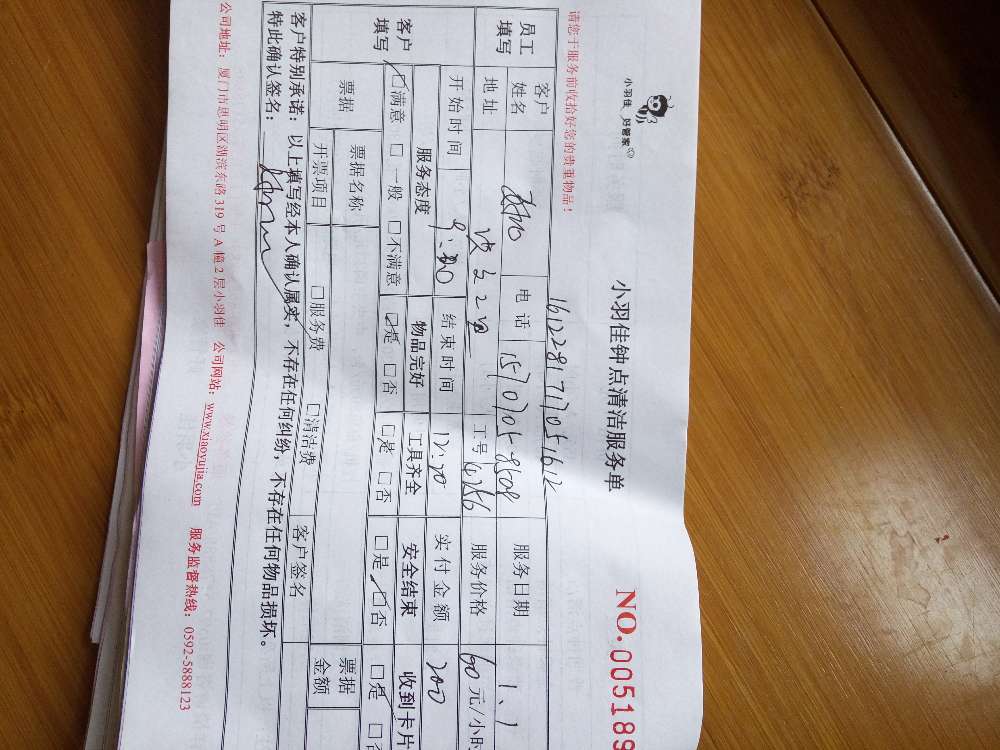 小羽佳 好管家
小羽佳钟点清洁服务单
NO.005189
请您于服务前收拾好您的贵重物品！
161228171705161
员工填写 客户姓名 电话 服务日期 1.1
地址 工号 4256 服务价格 60 元/小时
客户填写 开始时间 结束时间 实付金额 200
服务态度 物品完好 工具齐全 安全结束 收到卡片
□满意 □一般 □不满意 □是 □否 □是 □否 □是 □否 □是 □否
票据 票据名称 客户签名 票据金额
开票项目 □服务费 □清洁费
客户特别承诺：以上填写经本人确认属实，不存在任何纠纷，不存在任何物品损坏。
特此确认签名：
公司地址：厦门市思明区湖滨东路319号A幢2层小羽佳 公司网站：www.xiaoyujia.com 服务监督热线：0592-5888123